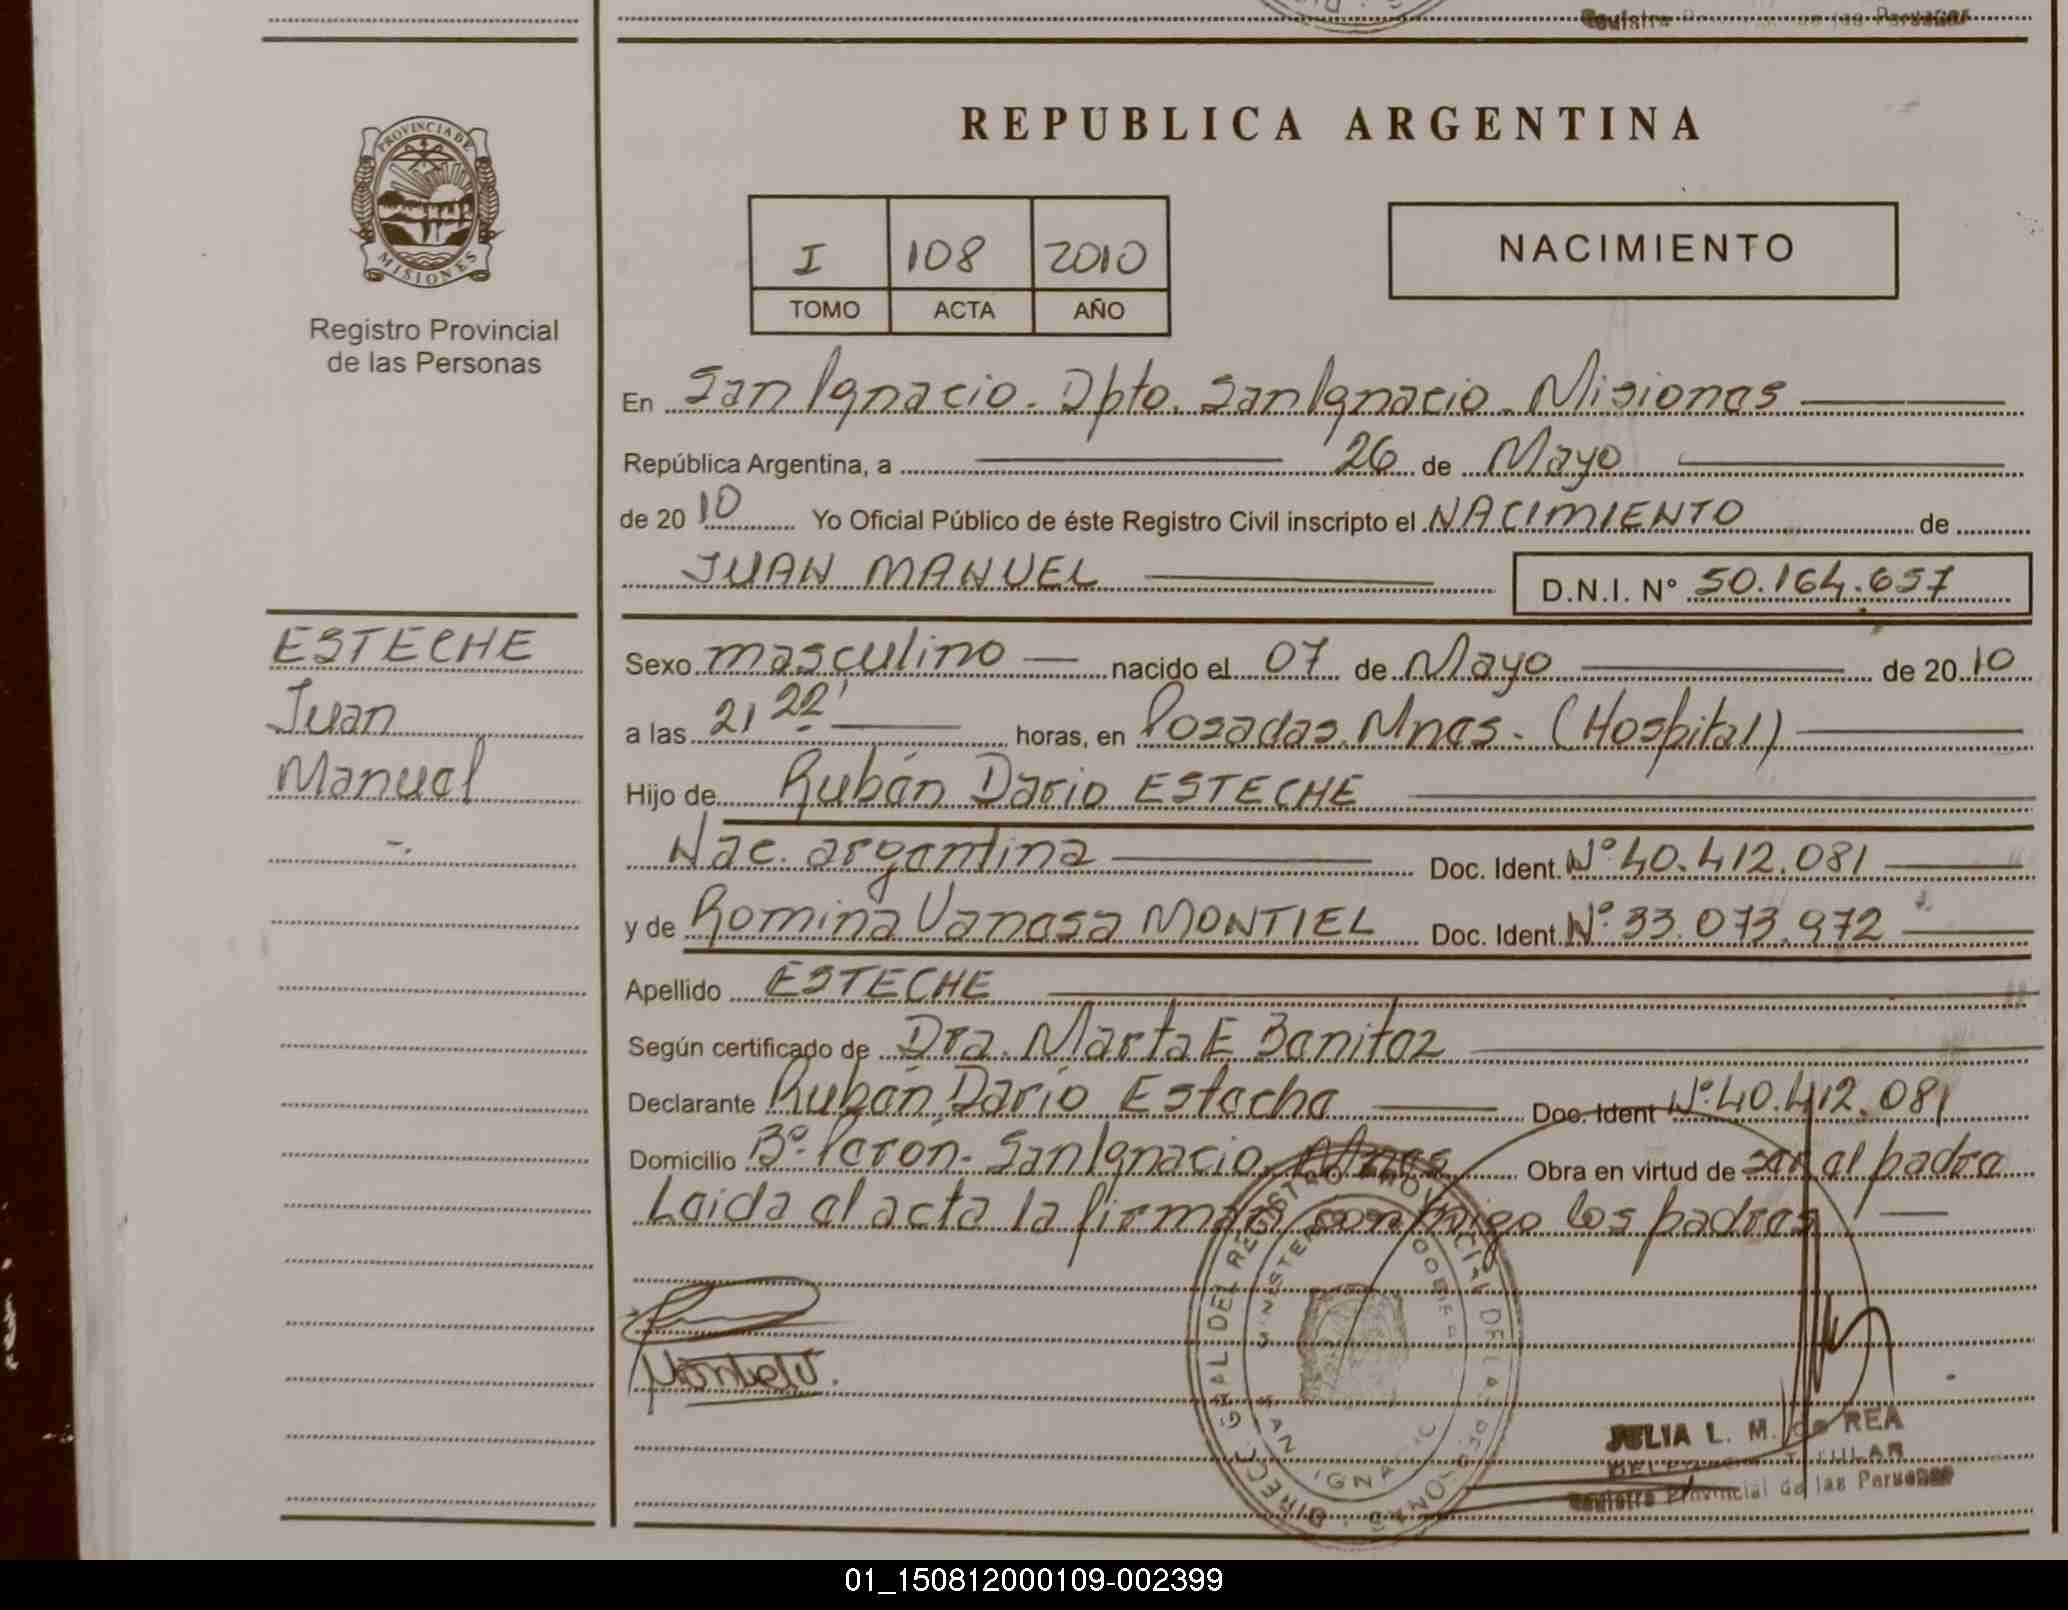 PROVINCIA DE
MISIONES
Registro Provincial
de las Personas
ESTECHE
Juan
Manuel
REPUBLICA ARGENTINA
I 108 2010
TOMO ACTA AÑO
NACIMIENTO
En San Ignacio. Dpto. San Ignacio. Misiones
República Argentina, a 26 de Mayo
de 20 10 Yo Oficial Público de éste Registro Civil inscripto el NACIMIENTO de
JUAN MANUEL D.N.I. N° 50.164.657
Sexo masculino nacido el 07 de Mayo de 20 10
a las 21 22' horas, en Posadas. Mnes. (Hospital)
Hijo de Rubén Dario ESTECHE
Nac. argentina Doc. Ident. N° 40.412.081
y de Romina Vanesa MONTIEL Doc. Ident. N° 33.073.972
Apellido ESTECHE
Según certificado de Dra. Marta E Benitez
Declarante Rubén Dario Esteche Doc. Ident N° 40.412.081
Domicilio B° Perón. San Ignacio. Mnes Obra en virtud de ser el padre
Leida el acta la firman conmigo los padres
DIRECC. GRAL DEL REGISTRO PROVINCIAL DE LAS PERSONAS
SAN IGNACIO
JULIA L. M.
TITULAR
Registro Provincial de las Personas
01_150812000109-002399